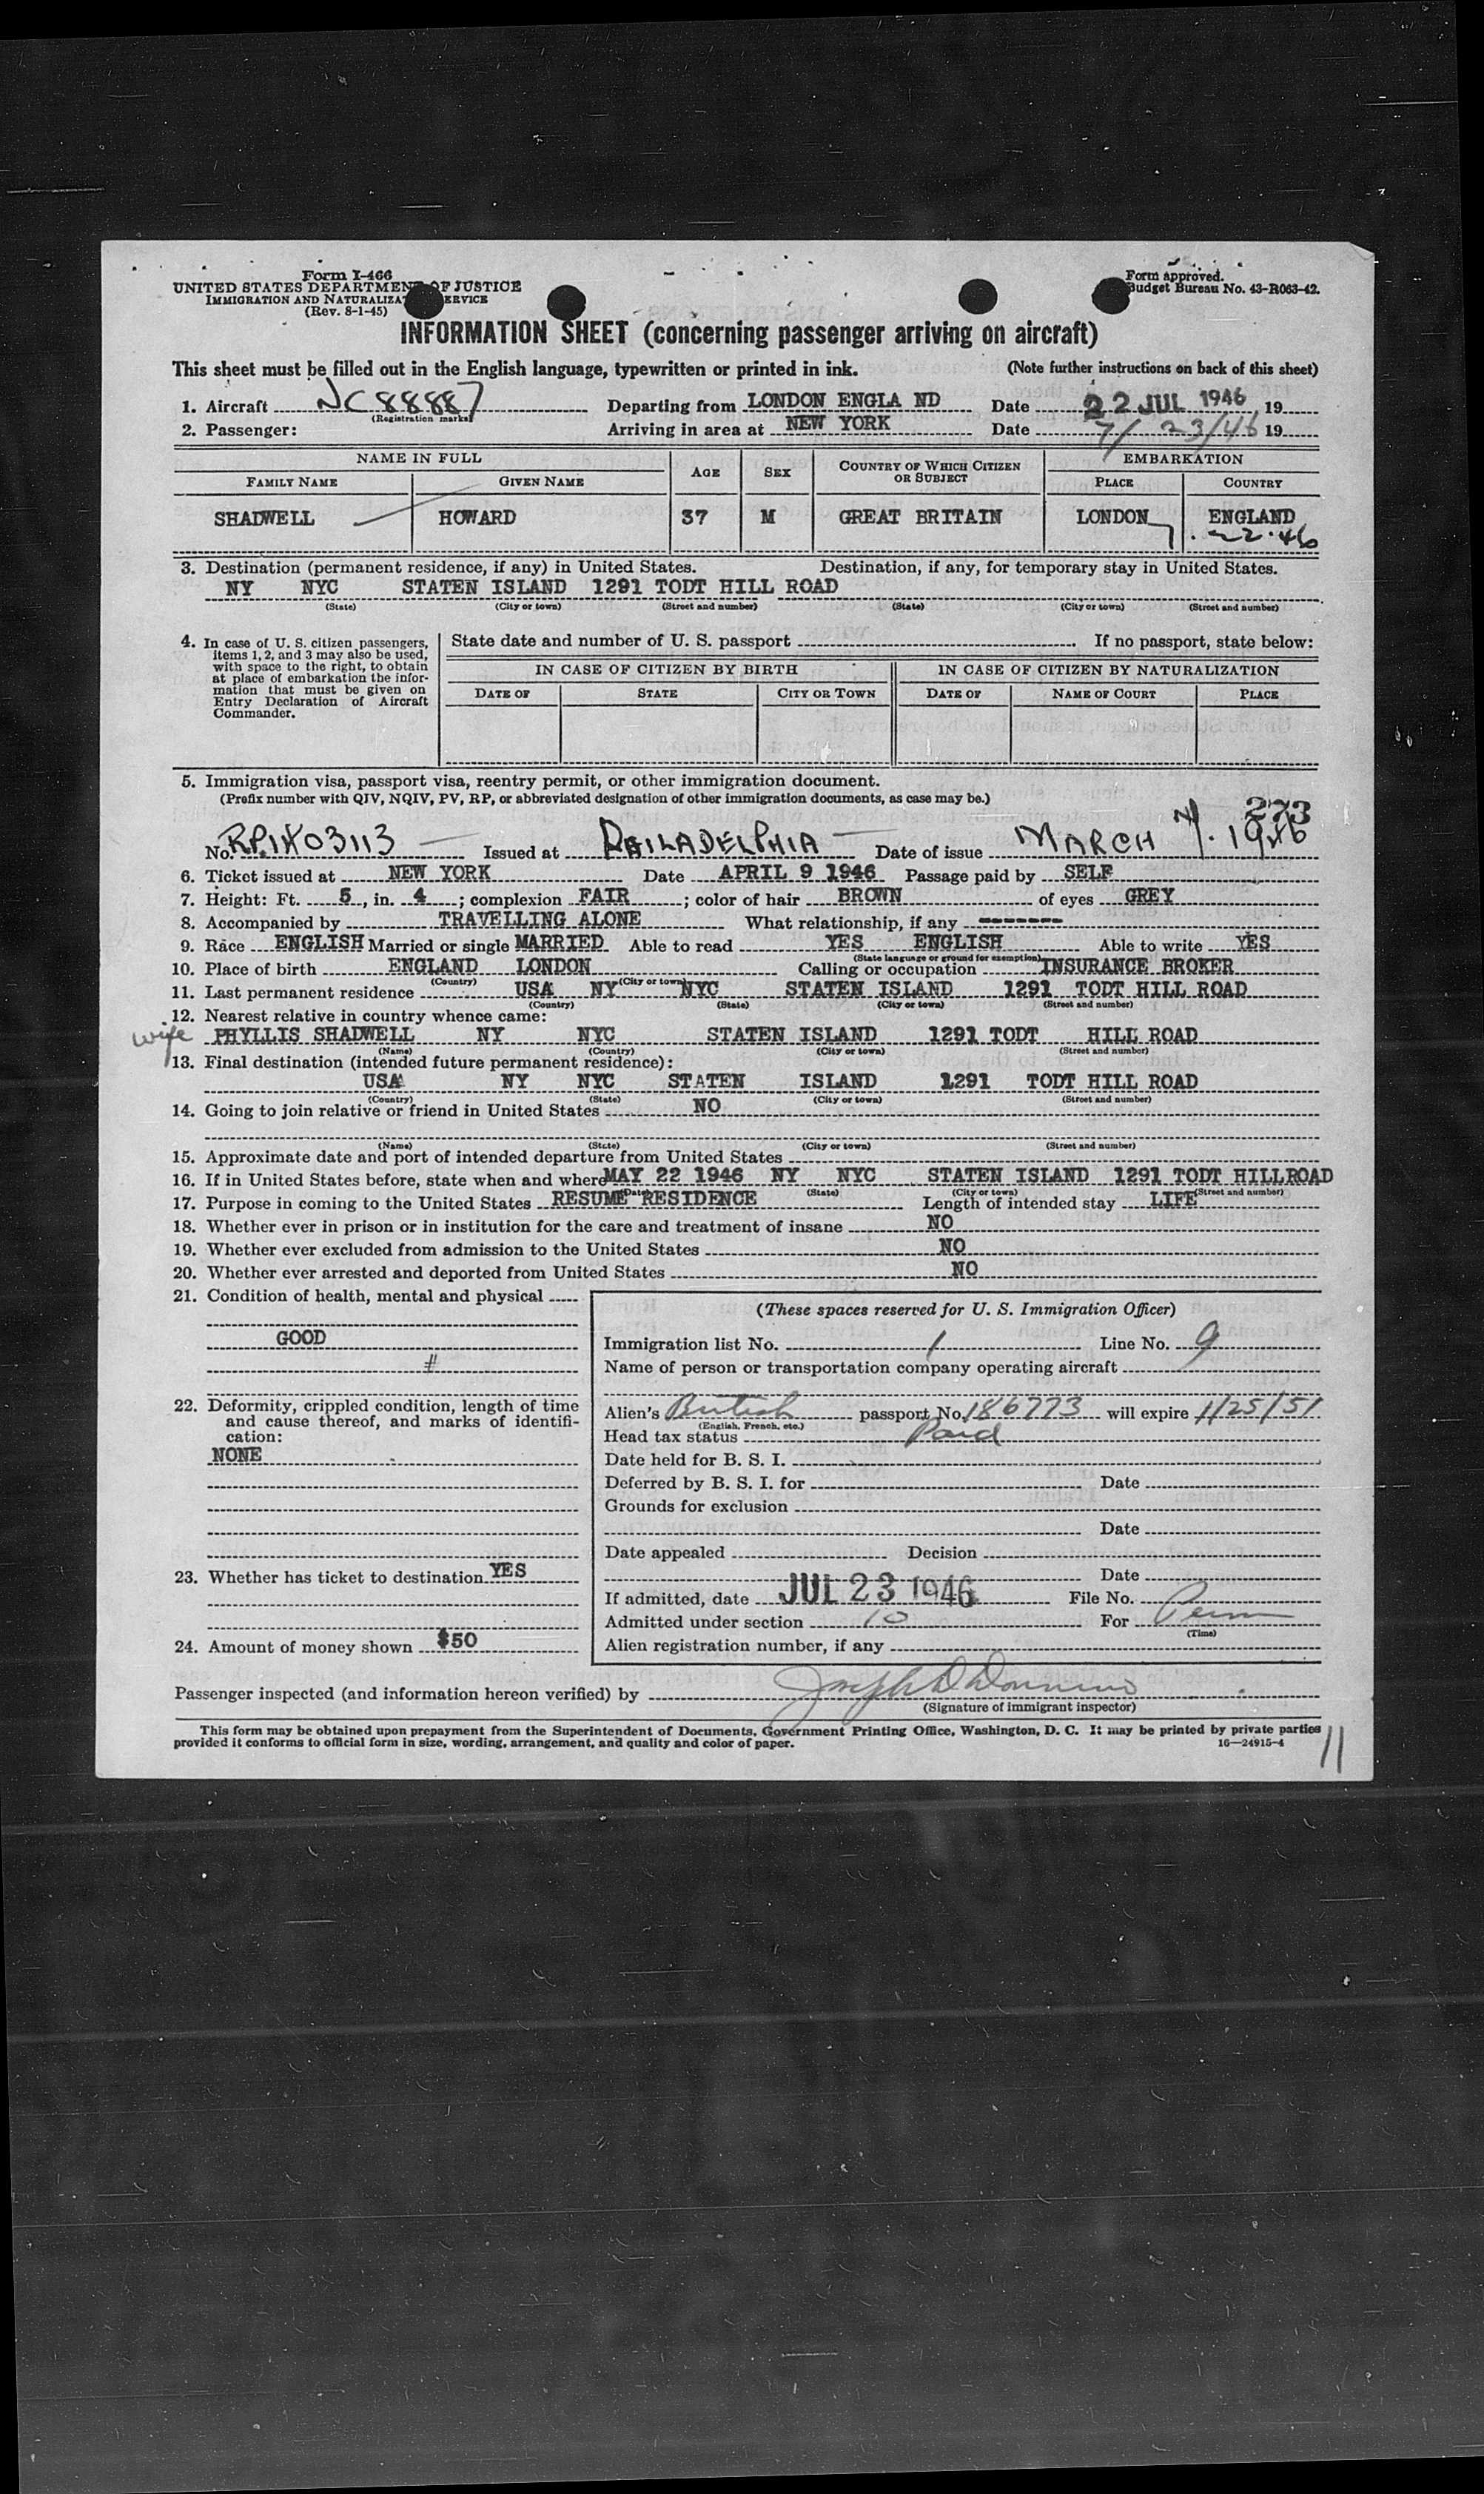 Form I-466
UNITED STATES DEPARTMENT OF JUSTICE
IMMIGRATION AND NATURALIZATION SERVICE
(Rev. 8-1-45)
Form approved.
Budget Bureau No. 43-R063-42.
INFORMATION SHEET (concerning passenger arriving on aircraft)
This sheet must be filled out in the English language, typewritten or printed in ink. (Note further instructions on back of this sheet)
1. Aircraft NC88887 Departing from LONDON ENGLA ND Date 22 JUL 1946, 19
(Registration marks)
2. Passenger: Arriving in area at NEW YORK Date 7/23/46 19
NAME IN FULL AGE SEX COUNTRY OF WHICH CITIZEN OR SUBJECT EMBARKATION
FAMILY NAME GIVEN NAME PLACE COUNTRY
SHADWELL HOWARD 37 M GREAT BRITAIN LONDON ENGLAND
7.22.46
3. Destination (permanent residence, if any) in United States. Destination, if any, for temporary stay in United States.
NY NYC STATEN ISLAND 1291 TODT HILL ROAD
(State) (City or town) (Street and number) (State) (City or town) (Street and number)
4. In case of U. S. citizen passengers, items 1, 2, and 3 may also be used, with space to the right, to obtain at place of embarkation the information that must be given on Entry Declaration of Aircraft Commander.
State date and number of U. S. passport If no passport, state below:
IN CASE OF CITIZEN BY BIRTH IN CASE OF CITIZEN BY NATURALIZATION
DATE OF STATE CITY OR TOWN DATE OF NAME OF COURT PLACE
5. Immigration visa, passport visa, reentry permit, or other immigration document.
(Prefix number with QIV, NQIV, PV, RP, or abbreviated designation of other immigration documents, as case may be.)
273
No. Issued at PHILADELPHIA Date of issue MARCH 1946
6. Ticket issued at NEW YORK Date APRIL 9 1946 Passage paid by SELF
7. Height: Ft. 5, in. 4; complexion FAIR; color of hair BROWN of eyes GREY
8. Accompanied by TRAVELLING ALONE What relationship, if any -------
9. Race ENGLISH Married or single MARRIED Able to read YES ENGLISH Able to write YES
(State language or ground for exemption)
10. Place of birth ENGLAND LONDON Calling or occupation INSURANCE BROKER
(Country) (City or town)
11. Last permanent residence USA NY NYC STATEN ISLAND 1291 TODT HILL ROAD
(Country) (State) (City or town) (Street and number)
12. Nearest relative in country whence came:
wife PHYLLIS SHADWELL NY NYC STATEN ISLAND 1291 TODT HILL ROAD
(Name) (Country) (City or town) (Street and number)
13. Final destination (intended future permanent residence):
USA NY NYC STATEN ISLAND 1291 TODT HILL ROAD
(Country) (State) (City or town) (Street and number)
14. Going to join relative or friend in United States NO
(Name) (State) (City or town) (Street and number)
15. Approximate date and port of intended departure from United States
16. If in United States before, state when and where MAY 22 1946 NY NYC STATEN ISLAND 1291 TODT HILLROAD
(Date) (State) (City or town) (Street and number)
17. Purpose in coming to the United States RESUME RESIDENCE Length of intended stay LIFE
18. Whether ever in prison or in institution for the care and treatment of insane NO
19. Whether ever excluded from admission to the United States NO
20. Whether ever arrested and deported from United States NO
21. Condition of health, mental and physical
GOOD
#
22. Deformity, crippled condition, length of time and cause thereof, and marks of identification:
NONE
23. Whether has ticket to destination YES
24. Amount of money shown $50
(These spaces reserved for U. S. Immigration Officer)
Immigration list No. 1 Line No. 9
Name of person or transportation company operating aircraft
Alien's British passport No. 186773 will expire 1/25/51
(English, French, etc.)
Head tax status Paid
Date held for B. S. I.
Deferred by B. S. I. for Date
Grounds for exclusion
Date
Date appealed Decision
Date
If admitted, date JUL 23 1946 File No.
Admitted under section 10 For Perm
(Time)
Alien registration number, if any
Passenger inspected (and information hereon verified) by Joseph
(Signature of immigrant inspector)
This form may be obtained upon prepayment from the Superintendent of Documents, Government Printing Office, Washington, D. C. It may be printed by private parties
provided it conforms to official form in size, wording, arrangement, and quality and color of paper. 16—24915-4
11